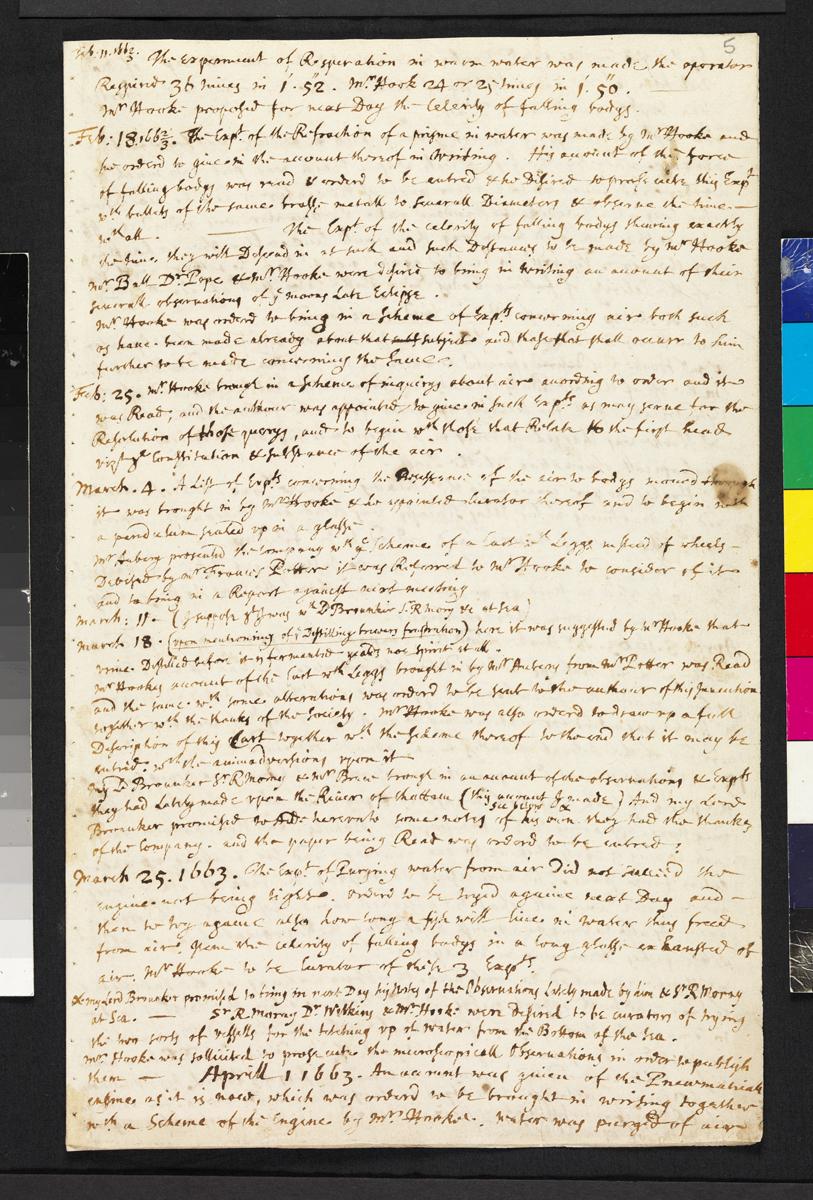 5
Feb. 11. 1662/3. The Experiment of Respiration in warm water was made the operator
Respired 36 times in 1'. 52". Mr Hook 24 or 25 times in 1'. 50".
Mr Hooke proposed for next Day the Celerity of falling bodys.
Feb: 18. 1662/3. The Expt. of the Refraction of a prisme in water was made by Mr Hooke and
he orderd to give in the account thereof in writing. His account of the force
of falling bodys was read & orderd to be entred & he Desired to prosecute this Expt
wth bullets of the same brasse metall to severall Diameters & observe the time
wth all. — The Expt. of the celerity of falling bodys shewing exactly
the time they will Descend in at such and such Distances to be made by Mr Hooke
Mr. Ball Dr. Pope & Mr. Hooke were desired to bring in writing an account of their
severall observations of ye moons Late Eclipse.
Mr Hooke was orderd to bring in a scheme of Expts concerning aire both such
as have been made already about that subject and those that shall occurr to him
further to be made concerning the same.
Feb: 25. Mr. Hooke brough in a scheme of inquirys about aire according to order and it
was Read, and the authour was appointed to give in such Expts as may serve for the
Resolution of those querys, and to begin wth those that Relate to the first head
vizt. ye Constitution & substance of the air.
March. 4. A List of Expts concerning the Resistance of the air to bodys moved through
it was brought in by Mr Hooke & he appointed Curator thereof and to begin with
a pendulum sealed up in a glasse.
Mr. Aubery presented the company wth ye Scheme of a Cart wth Leggs insteed of wheels
Devised by Mr. Francis Potter it was Referred to Mr Hooke to consider of it
and to bring in a Report against next meeting
March: 11. (I suppose yt yt was wn Ld Brounker Sr. R Mory &c at sea)
March 18. (upon mentioning of ye Distilling brewers frustration) here it was suggested by Mr Hooke that
urine Distilled before it is fermented yealds noe spirit at all.
Mr Hookes account of the Cart wth Leggs brought in by Mr Aubery from Mr Potter was Read
and the same wth some alterations was orderd to be sent to the authour of this Invention
together wth the thanks of the Society. Mr Hooke was also orderd to draw up a full
Description of this Cart together wth the scheme thereof to the end that it may be
entred, wth the animadversions upon it
My Ld Brounker Sr. R Moray & Mr Bruce brough in an account of the observations & Expts
they had Lately made upon the River of Chattam (this account I made) And my Lord
see before
Brounker promised to adde hereto some notes of his own they had the thanks
of the Company. and the paper being Read was orderd to be entred:
March 25. 1663. The Expt. of Purging water from air Did not succeed the
engine not being tight. orderd to be tryd againe next Day and
then to try againe also how long a fish will live in water thus freed
from air. Item the celerity of falling bodys in a long glasse exhausted of
air. Mr Hooke to be Curator of these 3 Expts.
& my Lord Brounker promised to bring in next Day his notes of the Observations Lately made by him & Sr. R Moray
at Sea. — Sr R Moray Dr. Wilkins & Mr. Hooke were Desired to be curators of trying
the two sorts of vessells for the fetching up of water from the Bottom of the Sea.
Mr. Hooke was sollicited to prosecute the microscopicall Observations in order to publish
them — Aprill 1 1663. An account was given of the Pneumaticall
engine as it is now, which was orderd to be brought in writing together
wth a Scheme of the Engine by Mr. Hooke. water was purged of air